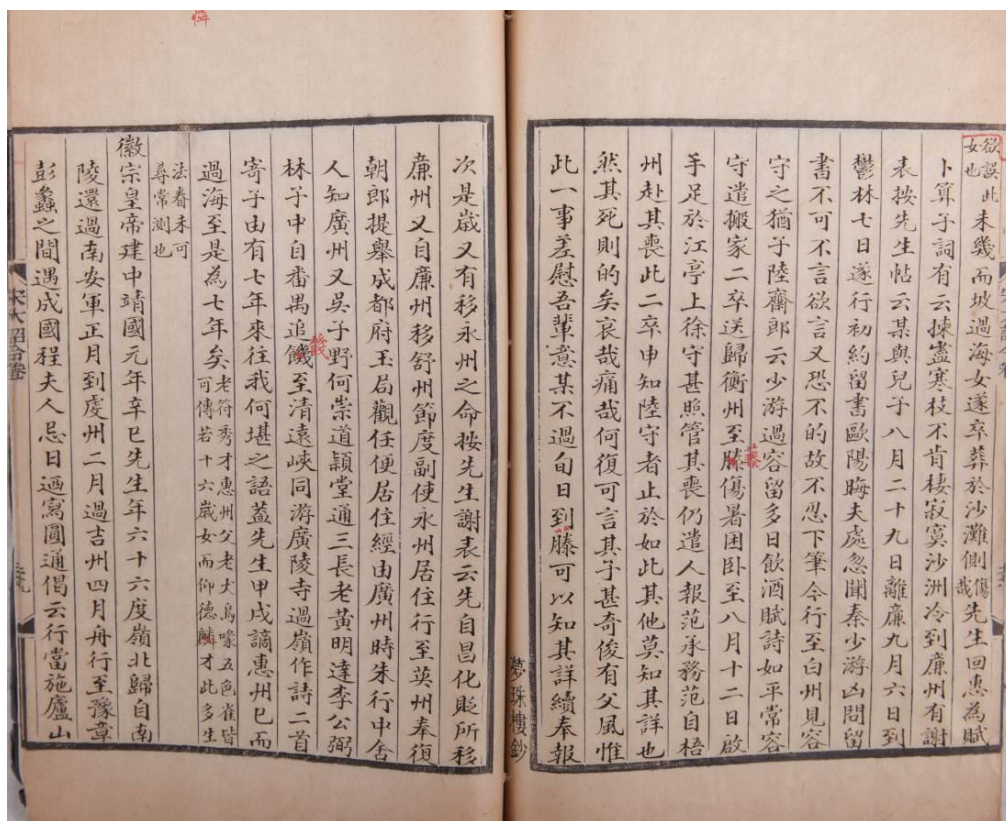 欲誤此
女也
未幾而坡過海女遂卒葬於沙灘側
傷
哉
先生回惠為賦
卜算子詞有云揀盡寒枝不肯棲寂寞沙洲冷到廉州有謝
表按先生帖云某與兒子八月二十九日離廉九月六日到
鬱林七日遂行初約留書歐陽晦夫處忽聞秦少游凶問留
書不可不言欲言又恐不的故不忍下筆今行至白州見容
守之猶子陸齋郎云少游過容留多日飲酒賦詩如平常容
守遣搬家二卒送歸衡州至滕傷暑困卧至八月十二日啟
手足於江亭上徐守甚照管其喪仍遣人報范承務范自梧
州赴其喪此二卒申知陸守者止於如此其他莫知其詳也
然其死則的矣哀哉痛哉何復可言其子甚奇俊有父風惟
此一事差慰吾輩意某不過旬日到藤可以知其詳續奉報
夢珠樓鈔
次是歲又有移永州之命按先生謝表云先自昌化貶所移
廉州又自廉州移舒州節度副使永州居住行至英州奉復
朝郎提舉成都府玉局觀任便居住經由廣州時朱行中舍
人知廣州又吳子野何崇道穎堂通三長老黃明達李公弼
林子中自番禺追餞至清遠峽同游廣陵寺過嶺作詩二首
寄子由有七年來往我何堪之語蓋先生甲戌謫惠州已而
過海至是為七年矣
老符秀才惠州父老犬烏喙五色雀皆
可傳若十六歲女而仰德麟才此多生
法眷未可
尋常測也
徽宗皇帝建中靖國元年辛巳先生年六十六度嶺北歸自南
陵還過南安軍正月到虔州二月過吉州四月舟行至豫章
彭蠡之間遇成國程夫人忌日迺寫圓通偈云行當施廬山